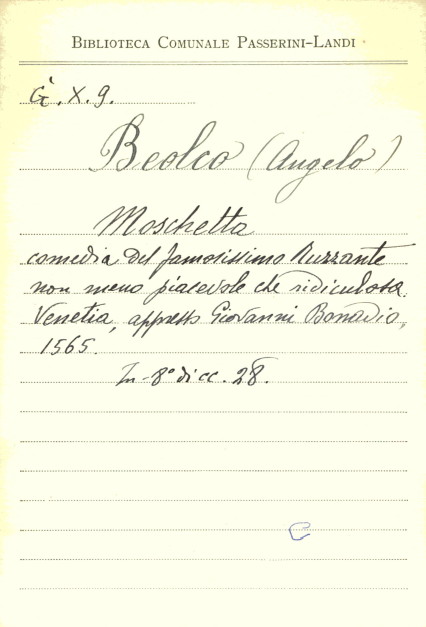 BIBLIOTECA COMUNALE PASSERINI-LANDI
G. X. 9.
Beolco (Angelo)
Moschetta
comedia del famosissimo Ruzzante
non meno piacevole che ridiculosa.
Venetia, appresso Giovanni Bonadio,
1565.
In-8° di cc. 28.
C